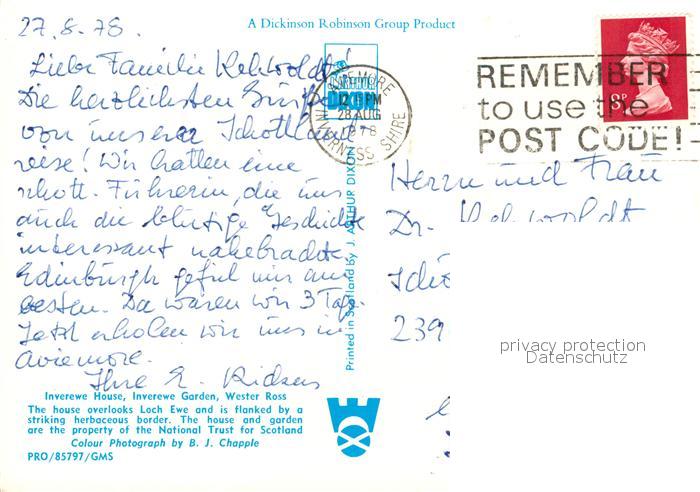 27.8.78.
A Dickinson Robinson Group Product
Liebe Familie Rehwoldt!
Die herzlichsten Grüße
von unserer Schottland
reise! Wir hatten eine
schott. Führerin, die uns
auch die blutige Geschichte
interessant nahebrachte.
Edinburgh gefiel mir am
besten. Da waren wir 3 Tage.
Jetzt erholen wir uns in
Aviemore.
Ihre E.
Inverewe House, Inverewe Garden, Wester Ross
The house overlooks Loch Ewe and is flanked by a
striking herbaceous border. The house and garden
are the property of the National Trust for Scotland
Colour Photograph by B. J. Chapple
PRO/85797/GMS
ARTHUR
DIXON
Printed in Scotland by J. ARTHUR DIXON
AVIEMORE
12 PM
28 AUG
1978
INVERNESS SHIRE
REMEMBER
to use the
POST CODE!
8P
Herrn und Frau
Dr. Rehwoldt
239
privacy protection
Datenschutz